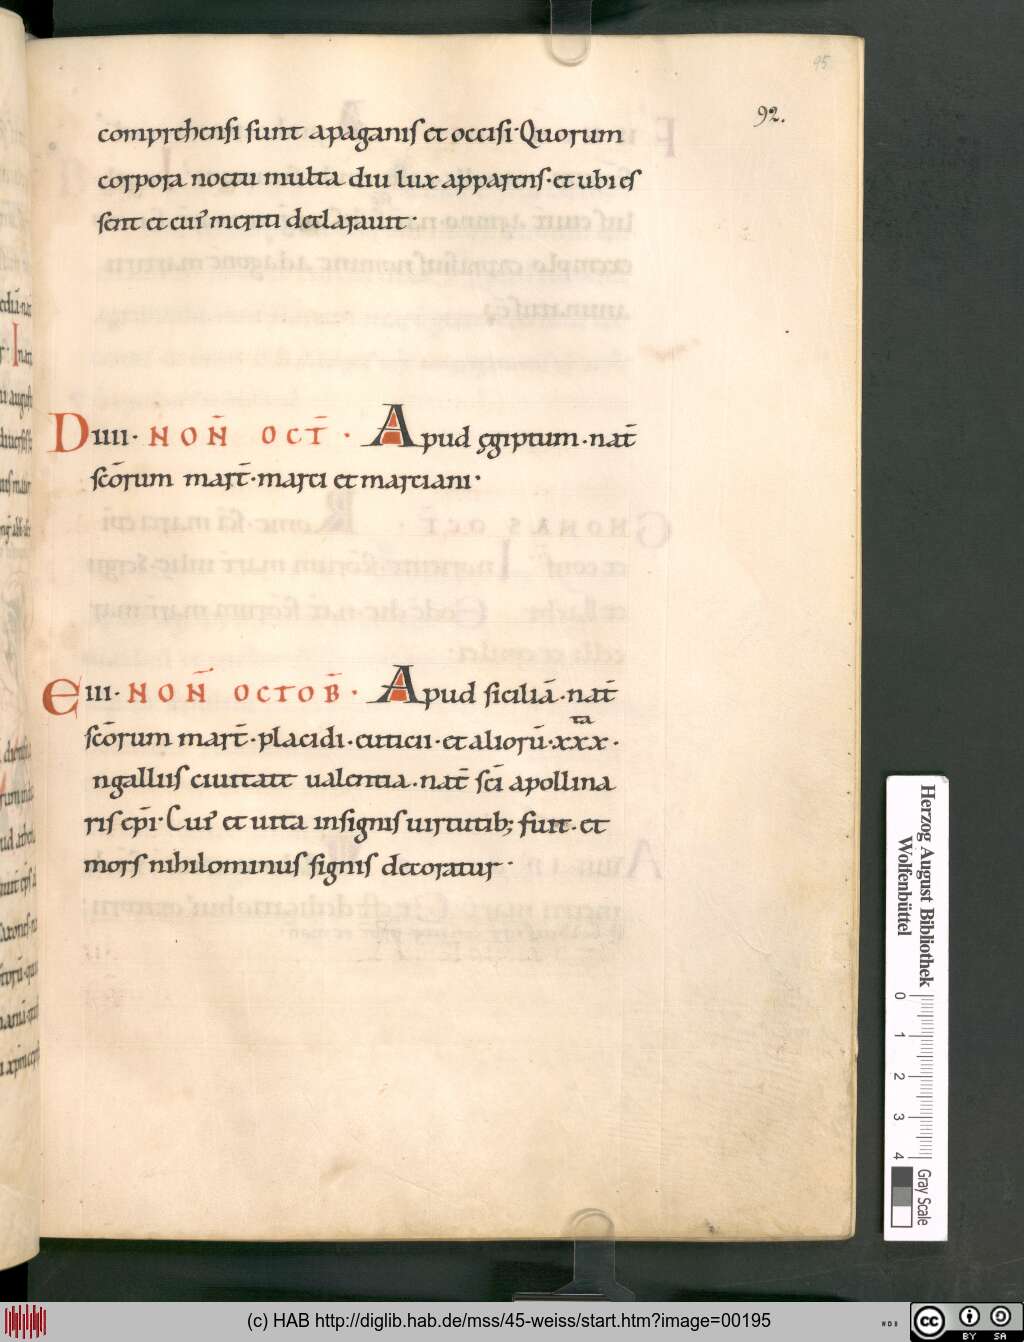 95
92.
comprehensi sunt apaganis et occisi· Quorum
corpora noctu multa diu lux apparens· et ubi es
sent et cui' meriti declarauit·
D IIII· NON̄ OCT̄· Apud ęgiptum· nat̄
sc̄orum mart̄· marci et marciani·
E III· NON̄ OCTOB̄· Apud siciliā· nat̄
sc̄orum mart̄· placidi· euticii· et aliorū· xxx ta·
ngalliis ciuitate ualentia· nat̄ sc̄i apollina
ris ep̄i· Cui' et uita insignis uirtutib; fuit· et
mors nihilominus signis decoratur·
Herzog August Bibliothek
Wolfenbüttel
0 1 2 3 4
Gray Scale
(c) HAB http://diglib.hab.de/mss/45-weiss/start.htm?image=00195
WDB
cc BY SA